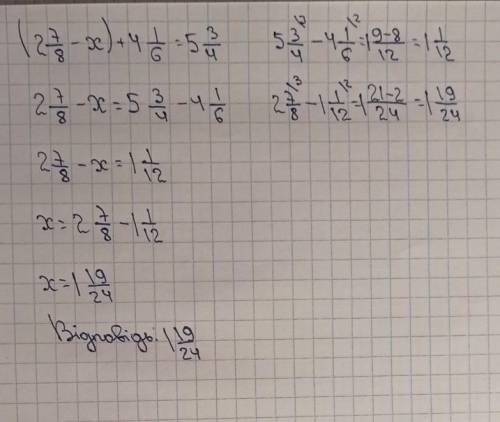 (2 7/8 - x) + 4 1/6 = 5 3/4
2 7/8 - x = 5 3/4 - 4 1/6
2 7/8 - x = 1 1/12
x = 2 7/8 - 1 1/12
x = 1 19/24
Відповідь: 1 19/24
5 3/4 - 4 1/6 = 1 9-8/12 = 1 1/12
2 7/8 \3 - 1 1/12 \2 = 1 21-2/24 = 1 19/24